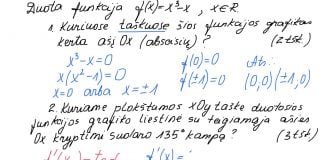 Duota funkcija f(x)=x³-x, x∈R
1. Kuriuose taškuose šios funkcijos grafikas
kerta ašį Ox (abscisių)? (2 tšk.)
x³-x=0 f(0)=0 Ats.:
x(x²-1)=0 f(±1)=0 (0,0)(±1,0)
x=0 arba x=±1
2. Kuriame plokštumos xOy taške duotosios
funkcijos grafiko liestinė su teigiamąja ašies
Ox kryptimi sudaro 135° kampą? (3 tšk)